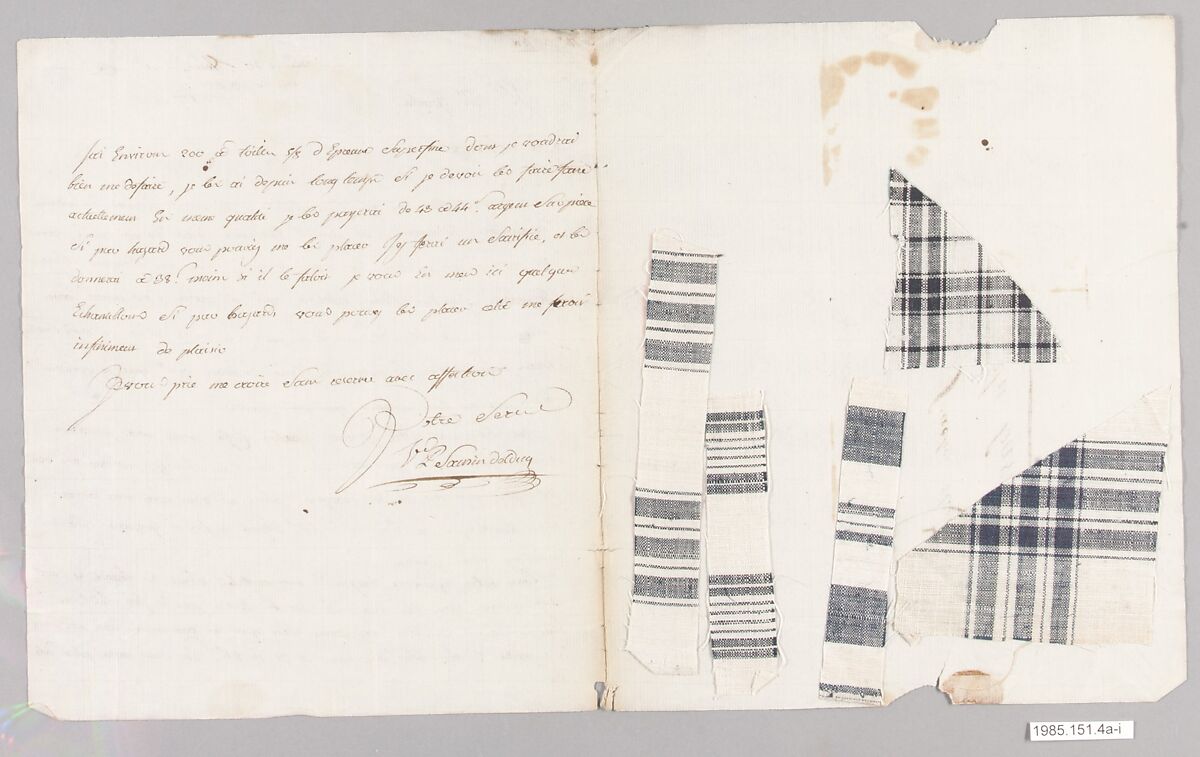 J'ai Environ 200 toiles 5/8 d' superfine dont je voudrai
bien me defaire, je les ai depuis longtemps Si je devois les faire faire
actuellement En meme qualité je les payerai de 43 a 44 argent
Si par hazard vous pouviez me les placer J'y ferai un Sacrifice, et les
donnerai a 38 s'il le faloit je vous En mets ici quelques
Echantillons Si par hazard vous pouvez les placer cela me feroit
infiniment de plaisir
vous prie me croire Sans reserve avec affection
Votre
1985.151.4a-i